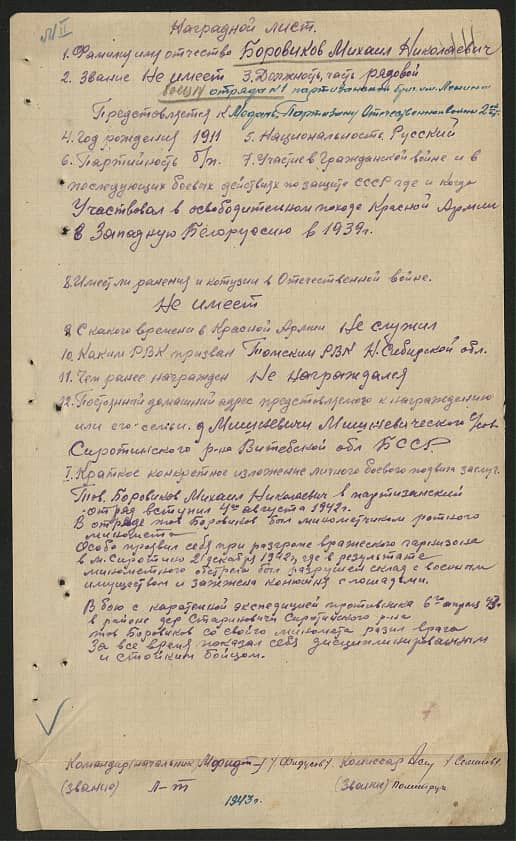 Наградной лист.
1. Фамилия имя отчество Боровиков Михаил Николаевич
2. Звание Не имеет 3. Должность, часть рядовой
отряда №1 партизанской бриг. им. Ленина
Представляется к Медаль „Партизану Отечественной войны" 2 ст.
4. Год рождения 1911 5. Национальность Русский
6. Партийность б/п. 7. Участие в Гражданской войне и в
последующих боевых действиях по защите СССР где и когда
Участвовал в освободительном походе Красной Армии
в Западную Белоруссию в 1939г.
8. Имеет ли ранения и контузии в Отечественной войне.
Не имеет
9. С какого времени в Красной Армии Не служил
10. Каким РВК призван Томским РВК Н. Сибирской обл.
11. Чем ранее награжден Не награждался
12. Постоянный домашний адрес представляемого к награждению
или его семьи. д Мишневичи Мишневического с/сов
Сиротинского р-на Витебской обл БССР.
I. Краткое конкретное изложение личного боевого подвига заслуг.
Тов. Боровиков Михаил Николаевич в партизанский
отряд вступил 4го августа 1942г.
В отряде тов Боровиков был минометчиком ротного
миномета
Особо проявил себя при разгроме вражеского гарнизона
в м. Сиротино 2 декабря 1942г, где в результате
минометного обстрела был разрушен склад с военным
имуществом и зажжена конюшня с лошадьми.
В бою с карательной экспедицией противника 6го апреля 43г
в районе дер Стариновичи Сиротинского р-на
тов Боровиков со своего миномета разил врага
За все время показал себя дисциплинированным
и стойким бойцом.
Командир (начальник) Комиссар
(звание) Л-т (Звание) Политрук
1943г.